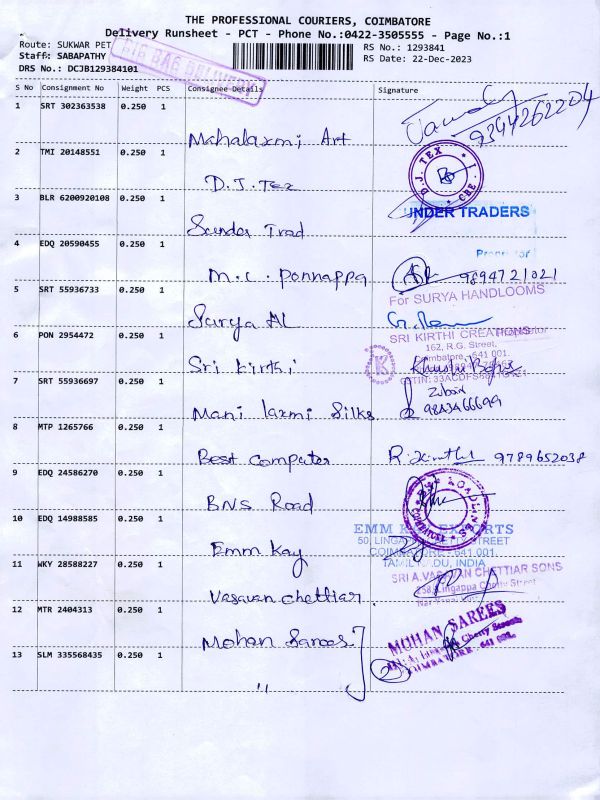 THE PROFESSIONAL COURIERS, COIMBATORE
Delivery Runsheet - PCT - Phone No.:0422-3505555 - Page No.:1
Route: SUKWAR PET
RS No.: 1293841
Staff: SABAPATHY
RS Date: 22-Dec-2023
DRS No.: DCJB129384101
BIG BAG DELIVERY
S No Consignment No Weight PCS Consignee Details Signature
1 SRT 302363538 0.250 1
Mahalaxmi Art 9344262204
2 TMI 20148551 0.250 1
D.J.Tex
D.J. TEX * CBE.1 *
3 BLR 6200920108 0.250 1
UNDER TRADERS
Sundar Trad
4 EDQ 20590455 0.250 1
M.C. Ponnappa 9894721021
5 SRT 55936733 0.250 1
For SURYA HANDLOOMS
Surya HL
6 PON 2954472 0.250 1
SRI KIRTHI CREATIONS
162, R.G. Street,
Coimbatore - 641 001.
Sri Kirthi
K
7 SRT 55936697 0.250 1
Zubair
Mani laxmi Silks 9843466699
8 MTP 1265766 0.250 1
Best Computer 9789652038
9 EDQ 24586270 0.250 1
BNS Road
10 EDQ 14988585 0.250 1
EMM
50, LINGA STREET
COIMBATORE - 641 001.
TAMIL NADU, INDIA
Emm Kay
11 WKY 28588227 0.250 1
SRI A.VASAVAN CHETTIAR SONS
Lingappa Chetty Street
Vasavan chettiar
12 MTR 2404313 0.250 1
MOHAN SAREES
Chetty Street
COIMBATORE - 641 001.
Mohan Sarees
13 SLM 335568435 0.250 1
"